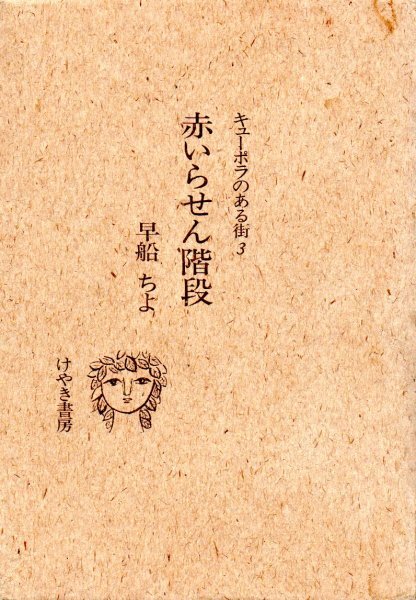 キューポラのある街 3
赤いらせん階段
早船 ちよ
けやき書房